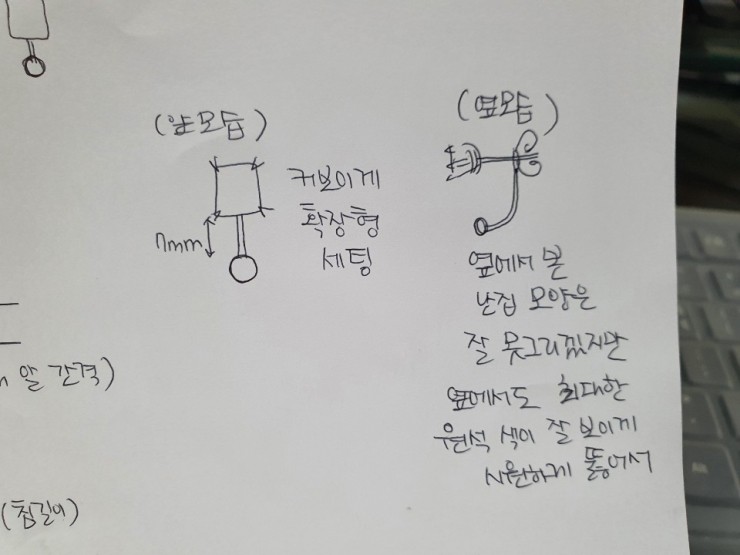 (앞모듭)
커보이게
확장형
세팅
7mm
(옆모듭)
옆에서 본
난집 모양은
잘 못그리겠지만
옆에서도 최대한
원석 색이 잘 보이게
시원하게 뚫어서
알 간격)
(침길이)